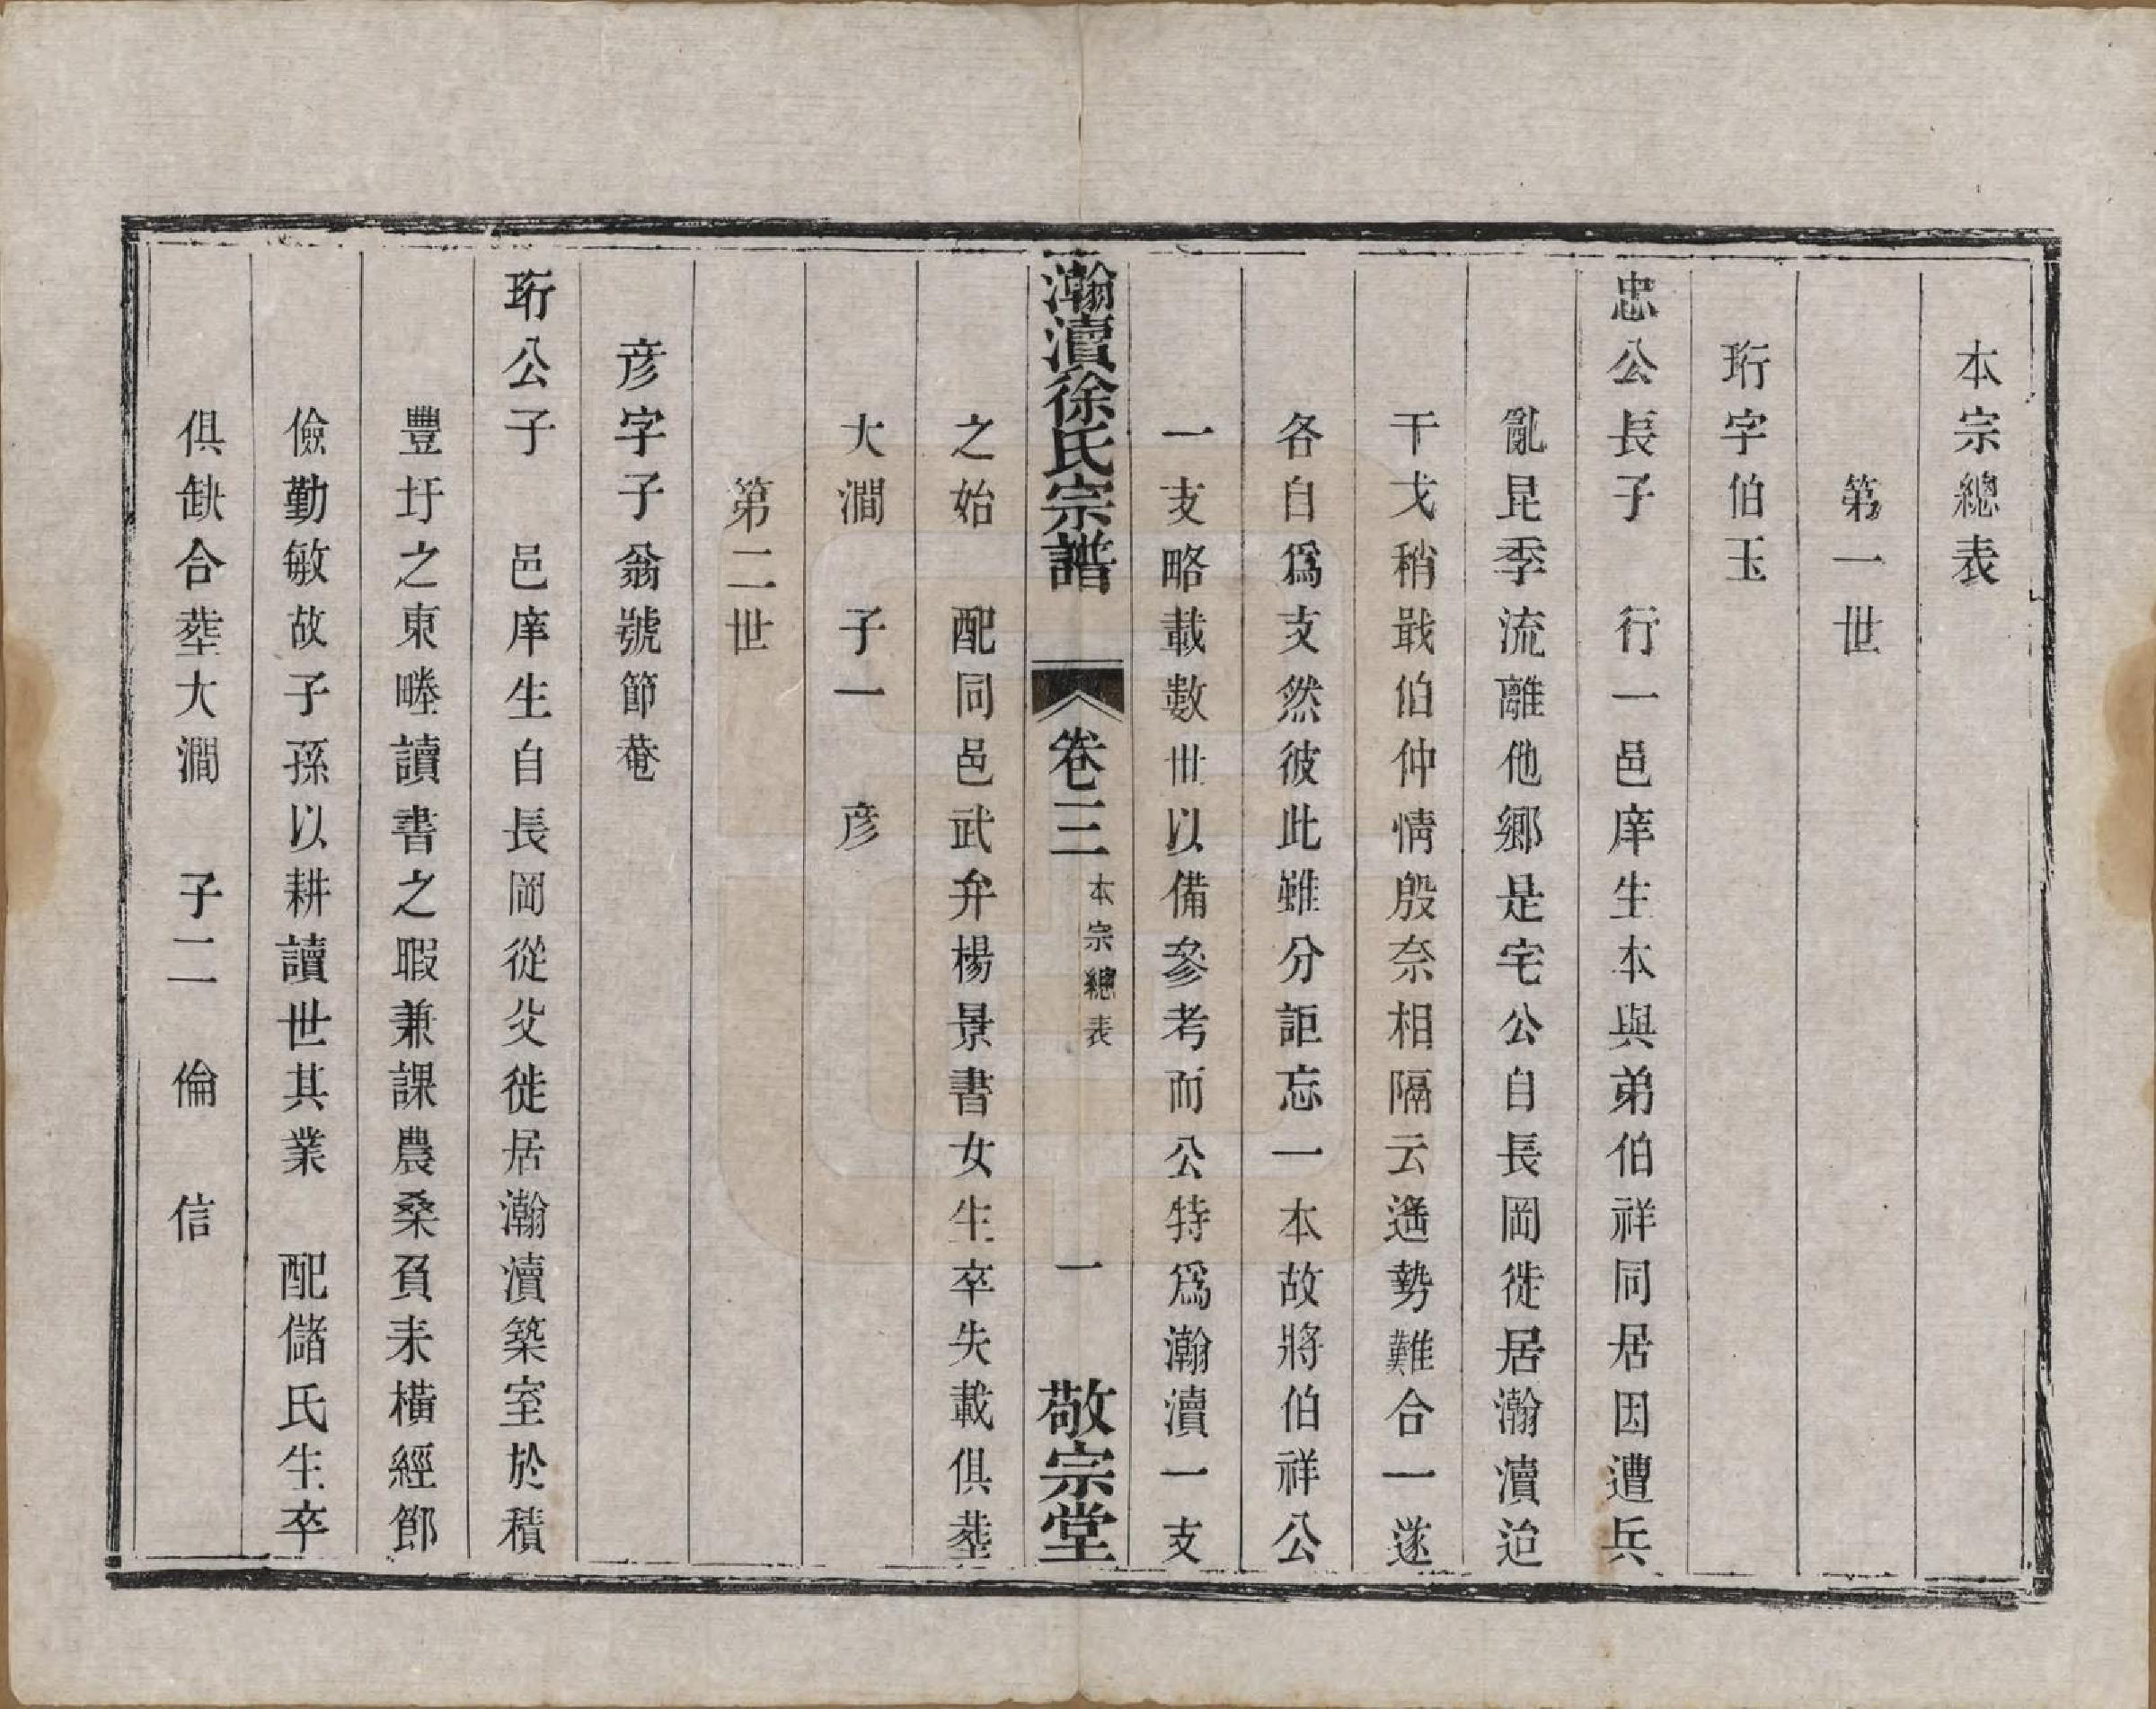 本宗總表
第一世
珩字伯玉
忠公長子　行一邑庠生本與弟伯祥同居因遭兵
亂昆季流離他鄉是宅公自長岡徙居瀚瀆迨
干戈稍戢伯仲情殷奈相隔云遙勢難合一遂
各自爲支然彼此雖分詎忘一本故將伯祥公
一支略載數世以備參考而公特爲瀚瀆一支
之始　配同邑武弁楊景書女生卒失載俱塟
大澗　子一　彥
第二世
彥字子翁號節菴
珩公子　邑庠生自長岡從父徙居瀚瀆築室於積
豐圩之東畻讀書之暇兼課農桑負耒橫經節
儉勤敏故子孫以耕讀世其業　配儲氏生卒
俱缺合塟大澗　子二　倫　信
瀚瀆徐氏宗譜　卷三　本宗總表　一　敬宗堂